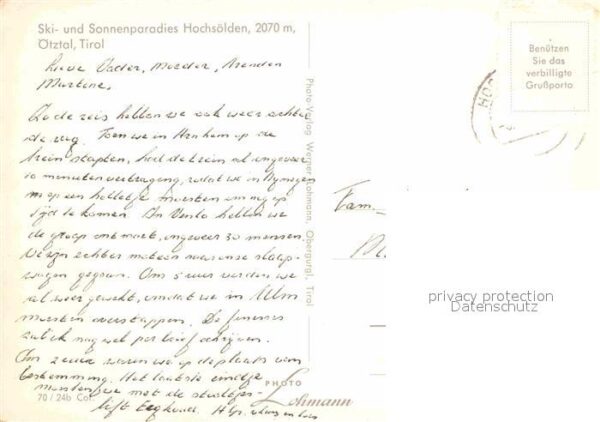 Ski- und Sonnenparadies Hochsölden, 2070 m,
Ötztal, Tirol
Lieve Vader, Moeder,
Martine,
Zo de reis hebben we ook weer achter
de rug. Toen we in Arnhem op de
trein stapten, had de trein al ongeveer
10 minuten vertraging, zodat we in Nijmegen
op een holletje moesten om nog op
tijd te komen. In Venlo hebben we
de groep ontmoet, ongeveer 30 mensen.
We zijn echter meteen naar onze slaap-
wagen gegaan. Om 5 uur werden we
al weer gewekt, omdat we in Ulm
moesten overstappen. De
zal ik nog wel per brief schrijven.
Om 2 uur waren we op de plaats van
bestemming. Het laatste eindje
moesten we met de stoeltjes-
lift
70/24b Col.
PHOTO
Lohmann
Photo-Verlag Werner Lohmann, Obergurgl, Tirol
Benützen
Sie das
verbilligte
Grußporto
HOC
Fam.
privacy protection
Datenschutz